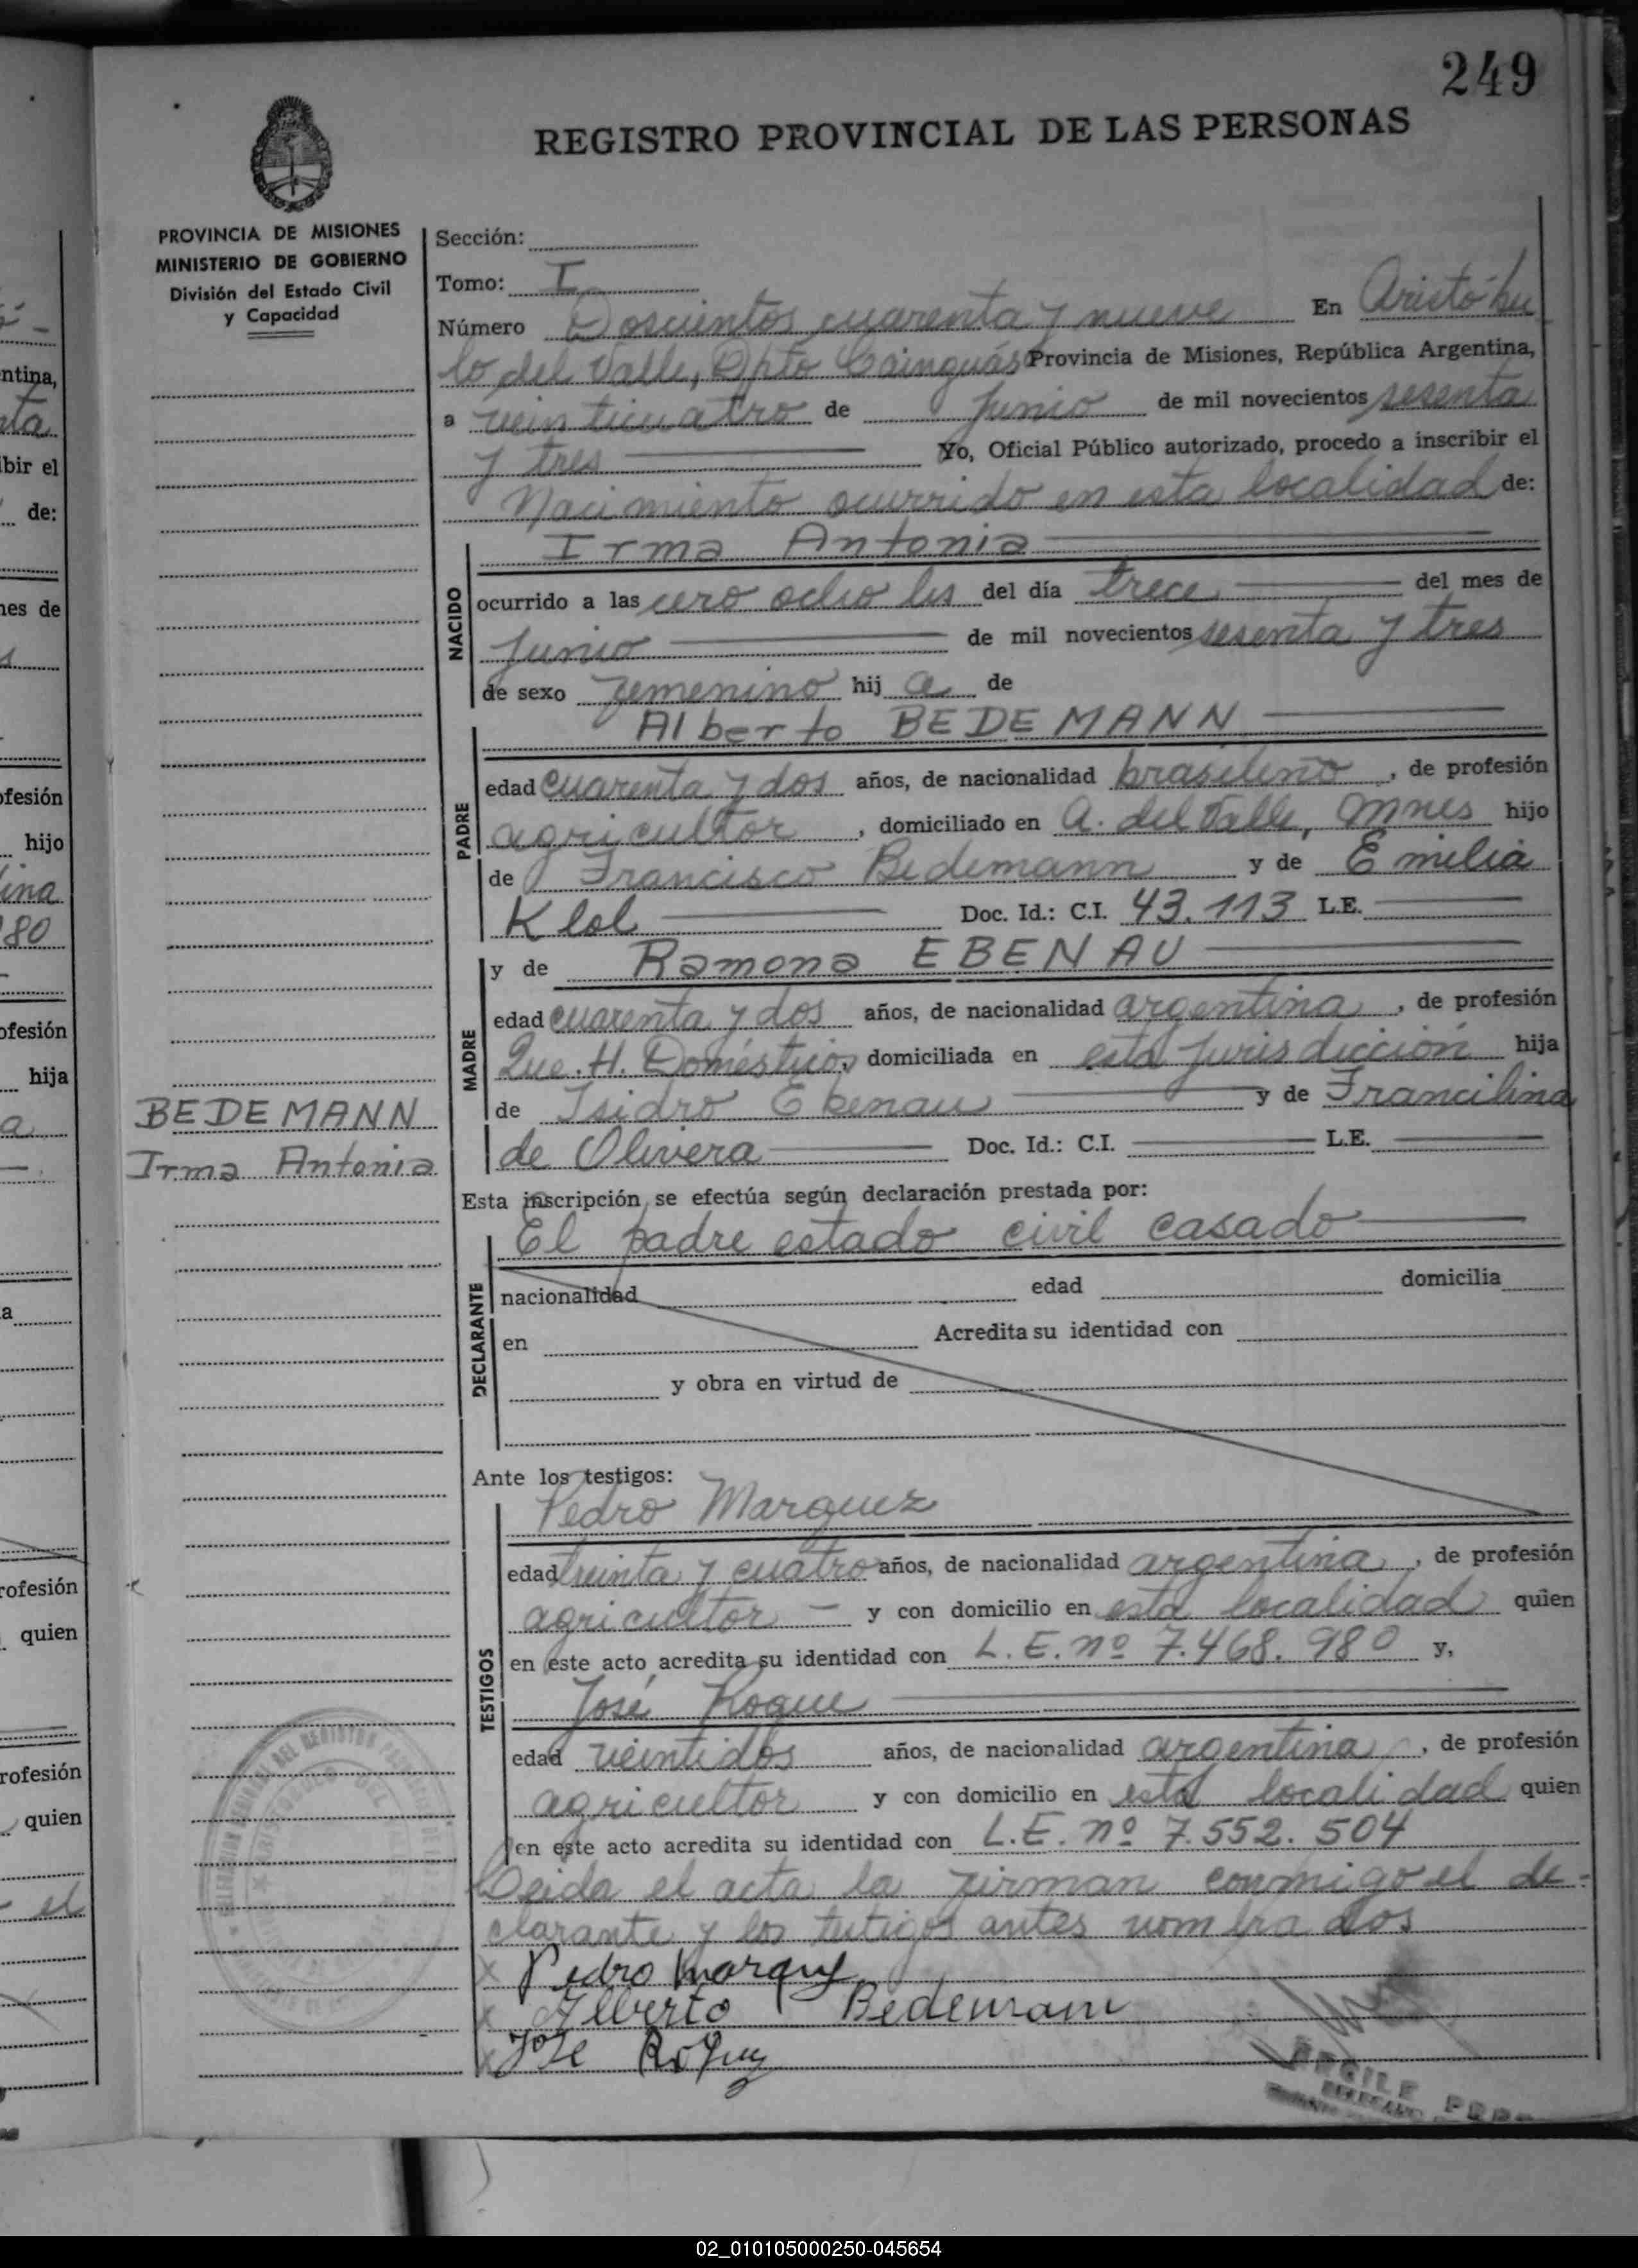 249
REGISTRO PROVINCIAL DE LAS PERSONAS
PROVINCIA DE MISIONES
MINISTERIO DE GOBIERNO
División del Estado Civil
y Capacidad
Sección:
Tomo: I
Número Doscientos cuarenta y nueve En Aristóbu
lo del Valle, Dpto Cainguás Provincia de Misiones, República Argentina,
a veinticuatro de Junio de mil novecientos sesenta
y tres Yo, Oficial Público autorizado, procedo a inscribir el
Nacimiento ocurrido en esta localidad de:
NACIDO
Irma Antonia
ocurrido a las cero ocho hs del día trece del mes de
Junio de mil novecientos sesenta y tres
de sexo femenino hij a de
PADRE
Alberto BEDEMANN
edad cuarenta y dos años, de nacionalidad brasileño, de profesión
agricultor, domiciliado en A. del Valle, Mnes hijo
de Francisco Bedemann y de Emilia
Klol Doc. Id.: C.I. 43.113 L.E.
MADRE
y de Ramona EBENAU
edad cuarenta y dos años, de nacionalidad argentina, de profesión
Que. H. Domésticos, domiciliada en esta Jurisdicción hija
de Isidro Ebenau y de Francilina
de Olivera Doc. Id.: C.I. L.E.
BEDEMANN
Irma Antonia
Esta inscripción se efectúa según declaración prestada por:
DECLARANTE
El padre estado civil casado
nacionalidad edad domicilia
en Acredita su identidad con
y obra en virtud de
Ante los testigos:
TESTIGOS
Pedro Marquez
edad treinta y cuatro años, de nacionalidad argentina, de profesión
agricultor - y con domicilio en esta localidad quien
en este acto acredita su identidad con L.E. nº 7.468.980 y,
José Roque
edad veintidos años, de nacionalidad argentina, de profesión
agricultor y con domicilio en esta localidad quien
en este acto acredita su identidad con L.E. nº 7.552.504
Leida el acta la firman conmigo el de-
clarante y los testigos antes nombrados
x Pedro Marquez
x Alberto Bedemann
x José Roque
02_010105000250-045654